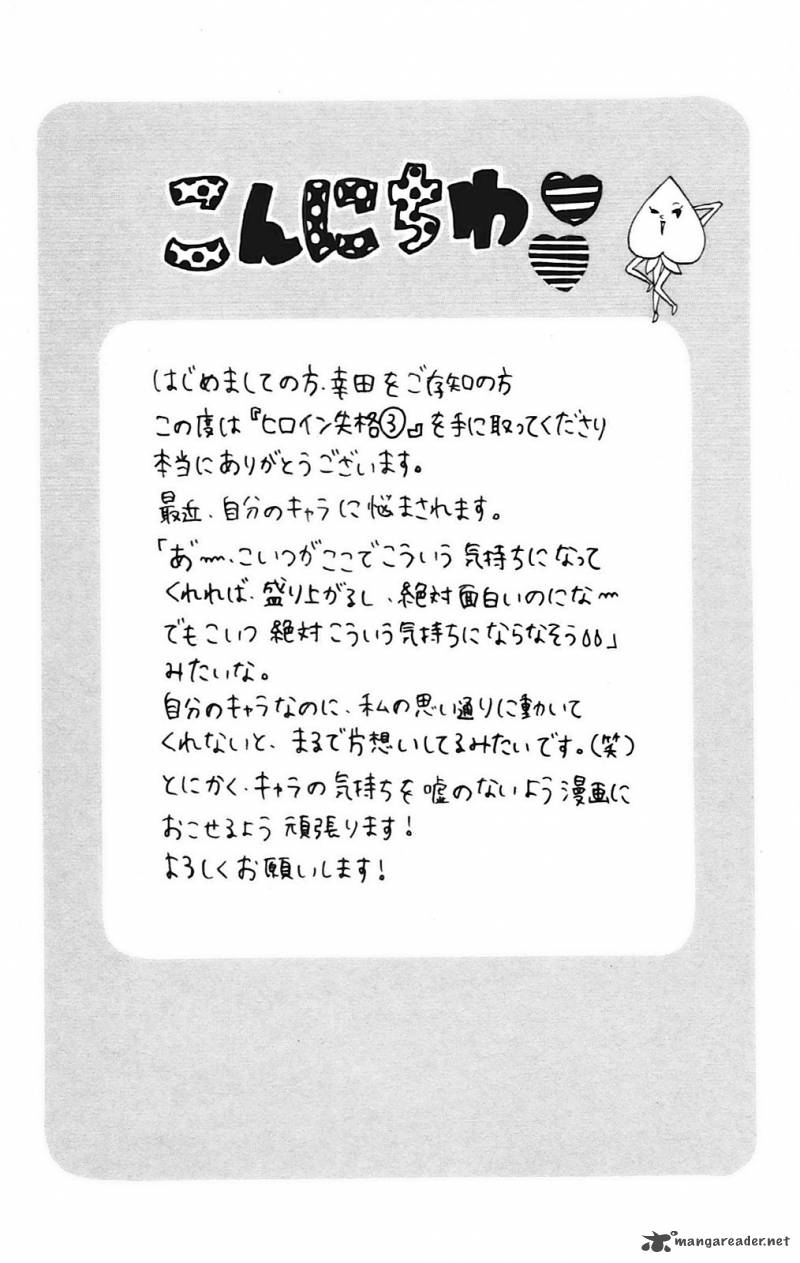 こんにちわ
はじめましての方、幸田をご存知の方
この度は『ヒロイン失格③』を手に取ってくださり
本当にありがとうございます。
最近、自分のキャラに悩まされます。
「あ゛〜、こいつがここでこういう気持ちになって
くれれば、盛り上がるし、絶対面白いのにな〜
でもこいつ絶対こういう気持ちにならなそう」
みたいな。
自分のキャラなのに、私の思い通りに動いて
くれないと、まるで片想いしてるみたいです。(笑)
とにかく、キャラの気持ちを嘘のないよう漫画に
おこせるよう頑張ります!
よろしくお願いします!
mangareader.net